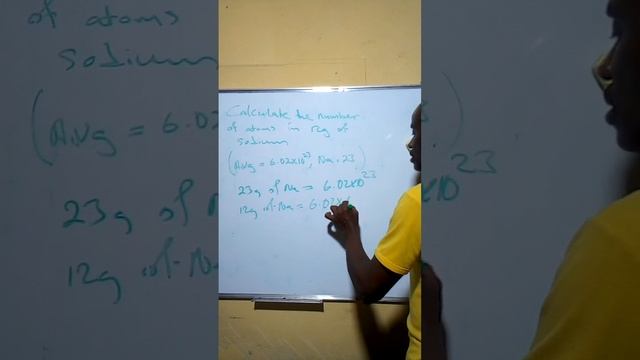 Calculate the number
of atoms in 12g of
sodium
(Avg = 6.02x10²³, Na = 23)
23g of Na = 6.02x10²³
12g of Na = 6.02x